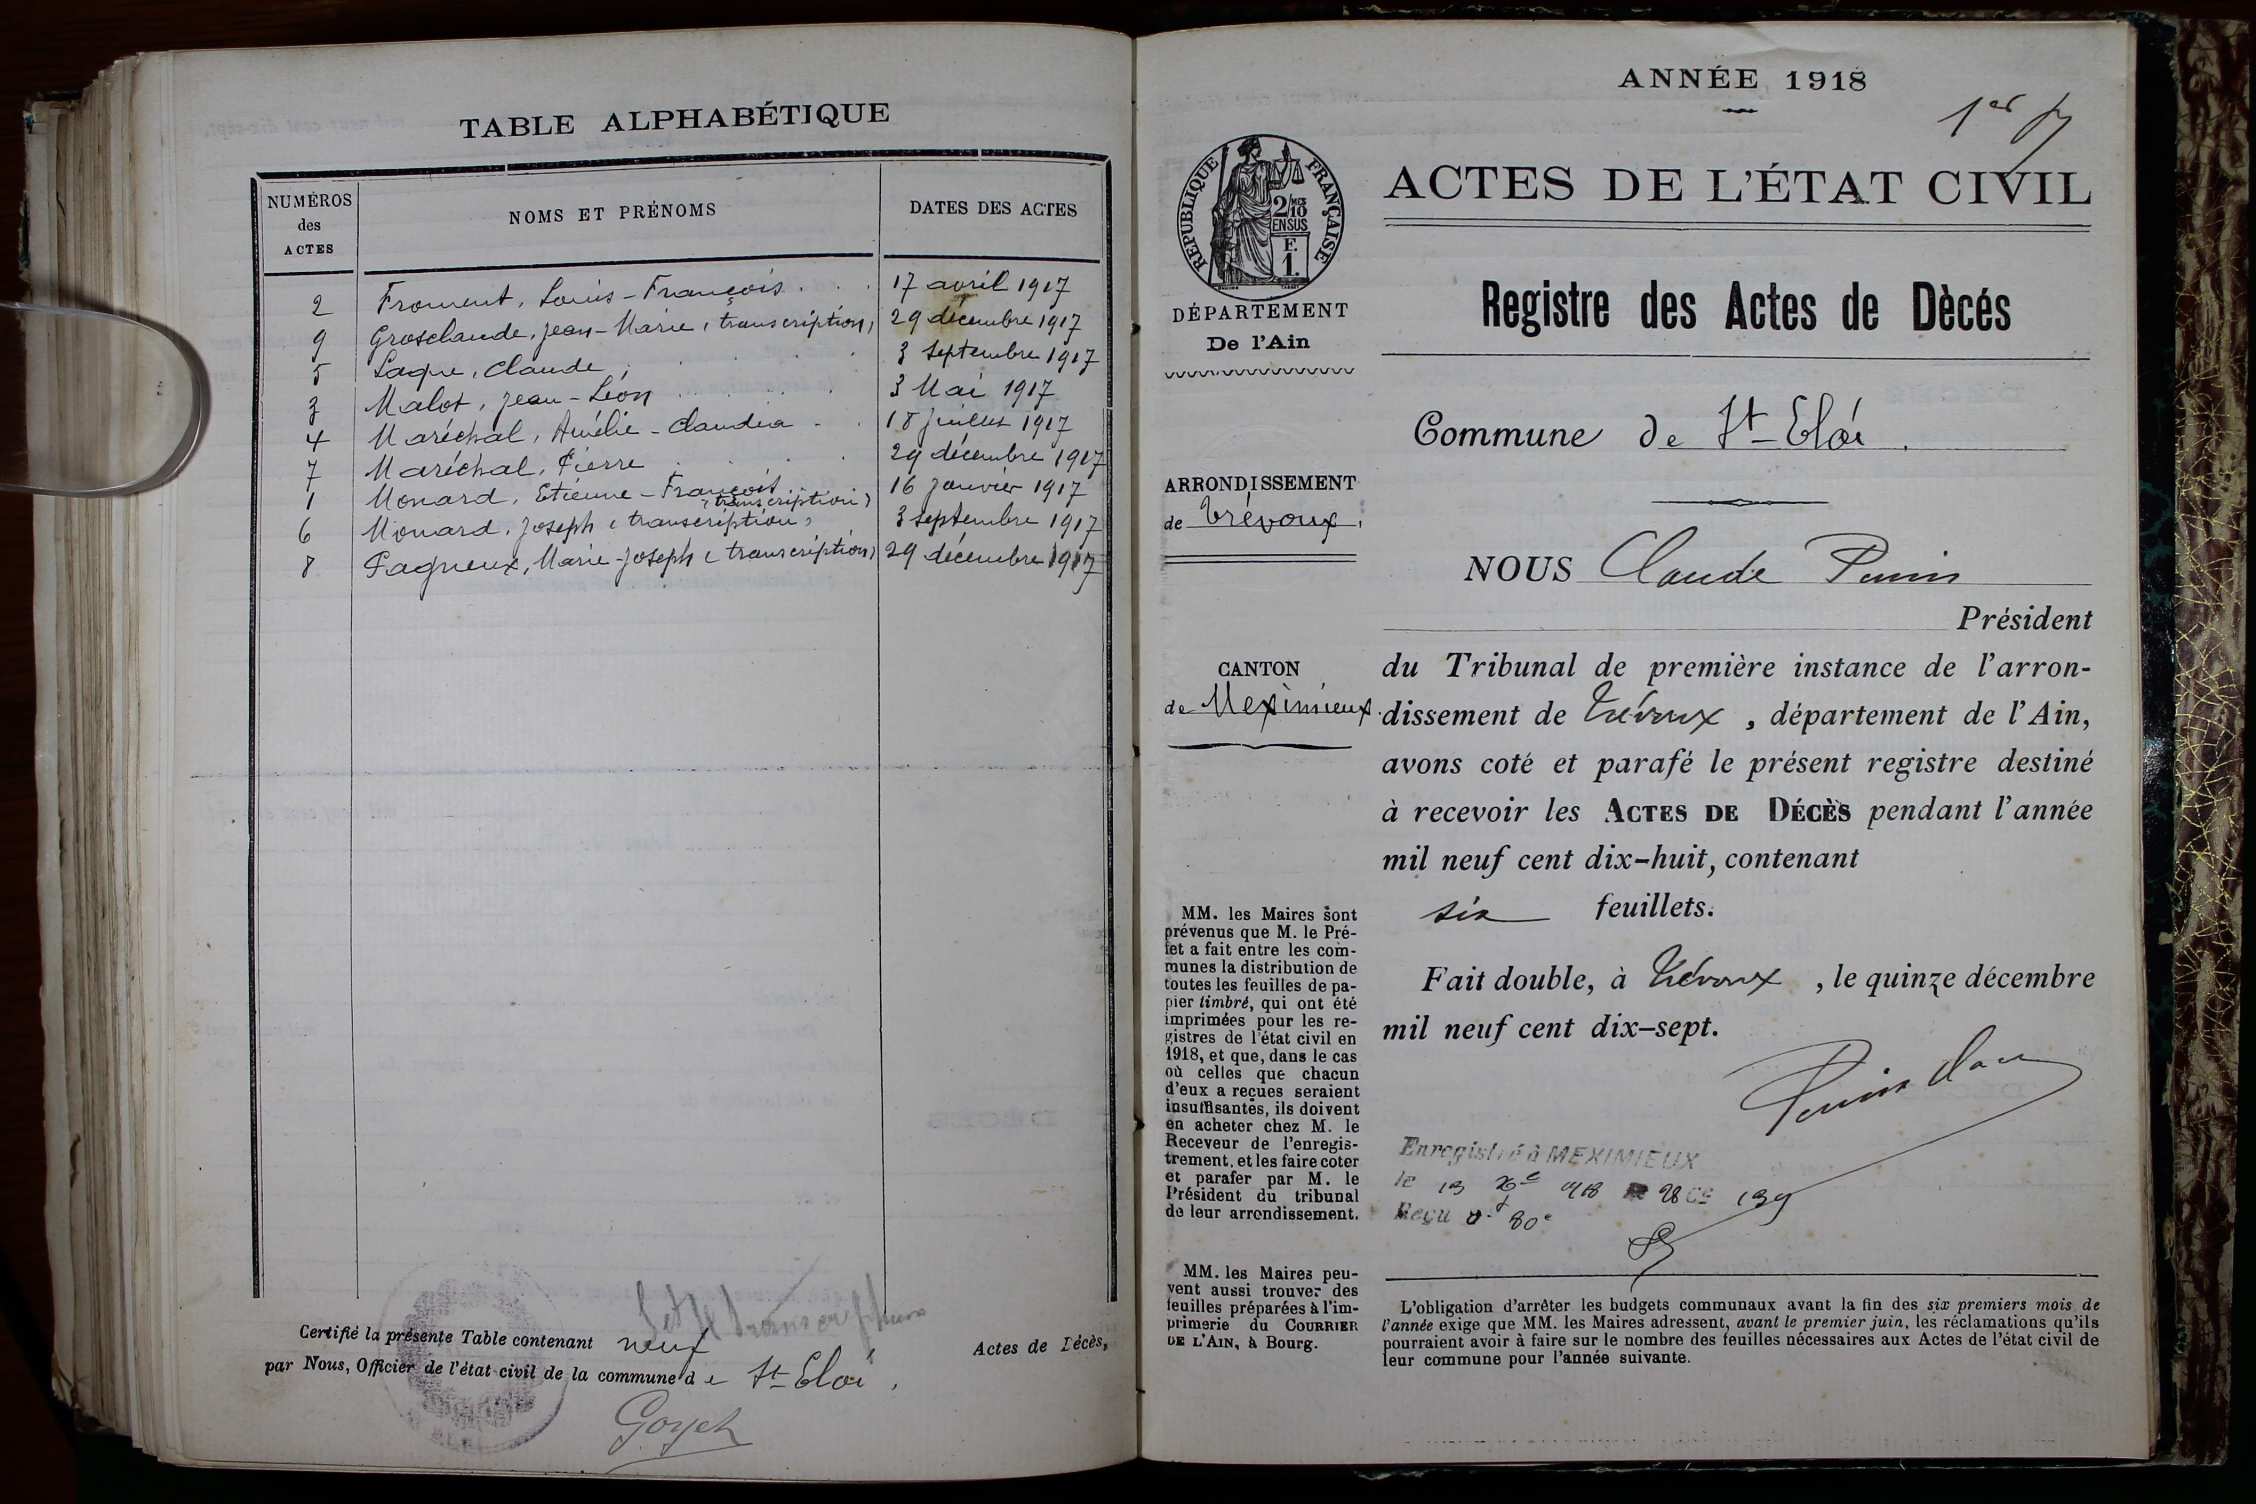 TABLE ALPHABÉTIQUE
NUMÉROS
des
ACTES
NOMS ET PRÉNOMS
DATES DES ACTES
2 Froment, Louis-François 17 avril 1917
9 Grosclaude, Jean-Marie (transcription) 29 décembre 1917
5 Claude 3 septembre 1917
3 Malot, Jean-Léon 3 Mai 1917
4 Maréchal, Amélie-Claudia 18 juillet 1917
7 Maréchal, Pierre 29 décembre 1917
1 Monard, Etienne-François (transcription) 16 janvier 1917
6 Monard, Joseph (transcription) 3 septembre 1917
8 Pagneux, Marie-Joseph (transcription) 29 décembre 1917
Certifié la présente Table contenant neuf Actes de Décès,
par Nous, Officier de l'état civil de la commune de St-Eloi,
ANNÉE 1918
1er
ACTES DE L'ÉTAT CIVIL
RÉPUBLIQUE FRANÇAISE
2/10 MES
EN SUS
F.
1.
Registre des Actes de Dècés
DÉPARTEMENT
De l'Ain
Commune de St-Eloi.
ARRONDISSEMENT
de Trévoux,
NOUS Claude
Président
CANTON
de Meximieux.
du Tribunal de première instance de l'arron-
dissement de Trévoux, département de l'Ain,
avons coté et parafé le présent registre destiné
à recevoir les ACTES DE DÉCÈS pendant l'année
mil neuf cent dix-huit, contenant
six feuillets.
Fait double, à Trévoux, le quinze décembre
mil neuf cent dix-sept.
MM. les Maires sont
prévenus que M. le Pré-
fet a fait entre les com-
munes la distribution de
toutes les feuilles de pa-
pier timbré, qui ont été
imprimées pour les re-
gistres de l'état civil en
1918, et que, dans le cas
où celles que chacun
d'eux a reçues seraient
insuffisantes, ils doivent
en acheter chez M. le
Receveur de l'enregis-
trement, et les faire coter
et parafer par M. le
Président du tribunal
de leur arrondissement.
Enregistré à MEXIMIEUX
le 13
Reçu 80c
MM. les Maires peu-
vent aussi trouver des
feuilles préparées à l'im-
primerie du COURRIER
DE L'AIN, à Bourg.
L'obligation d'arrêter les budgets communaux avant la fin des six premiers mois de
l'année exige que MM. les Maires adressent, avant le premier juin, les réclamations qu'ils
pourraient avoir à faire sur le nombre des feuilles nécessaires aux Actes de l'état civil de
leur commune pour l'année suivante.